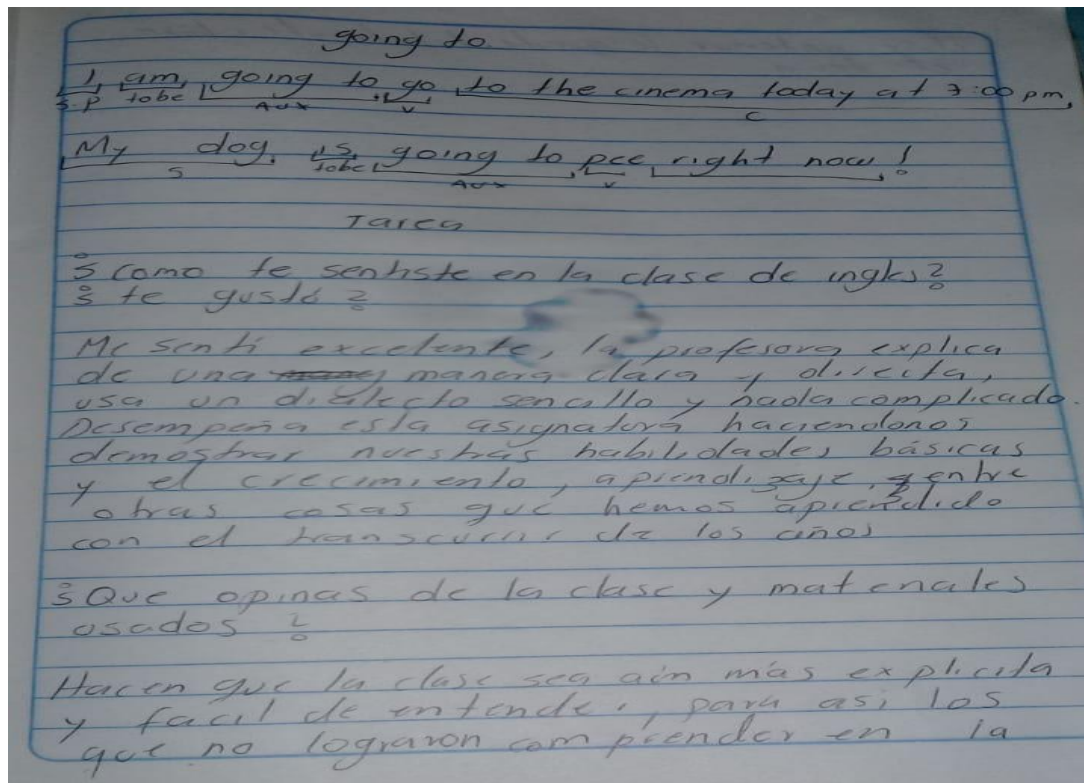 going to
I am going to go to the cinema today at 7:00 pm
S.P tobe Aux V C
My dog is going to pee right now!
S tobe Aux v
Tarea
¿como te sentiste en la clase de ingles?
¿te gustó?
Me senti excelente, la profesora explica
de una manera clara y directa,
usa un dialecto sencillo y nada complicado.
Desempeña esta asignatura haciendonos
demostrar nuestras habilidades básicas
y el crecimiento, aprendizaje, y entre
otras cosas que hemos aprendido
con el transcurrir de los años
¿Que opinas de la clase y materiales
usados?
Hacen que la clase sea aún más explicita
y facil de entender, para asi los
que no lograron comprender en la